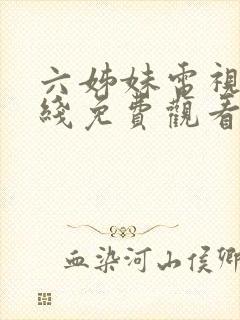 六姊妹電視
綫免費觀看
血染河山侯卿